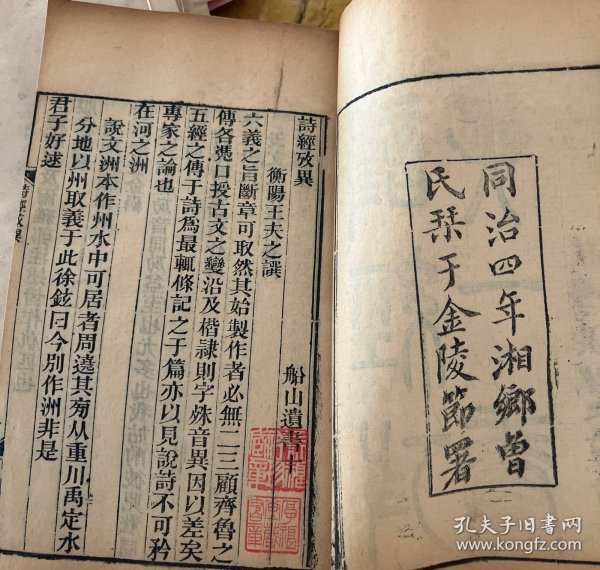 同治四年湘鄉曾
氏栞于金陵節署
詩經攷異
船山遺書十
衡陽王夫之譔
六義之旨斷章可取然其始製作者必無二三顧齊魯之
傳各憑口授古文之變沿及楷隸則字殊音異因以差矣
五經之傳于詩為最輒條記之于篇亦以見說詩不可矜
專家之論也
在河之洲
說文洲本作州水中可居者周遶其旁从重川禹定水
分地以州取義于此徐鉉曰今別作洲非是
君子好逑
詩經攷異
孔夫子旧书网
www.kongfz.com